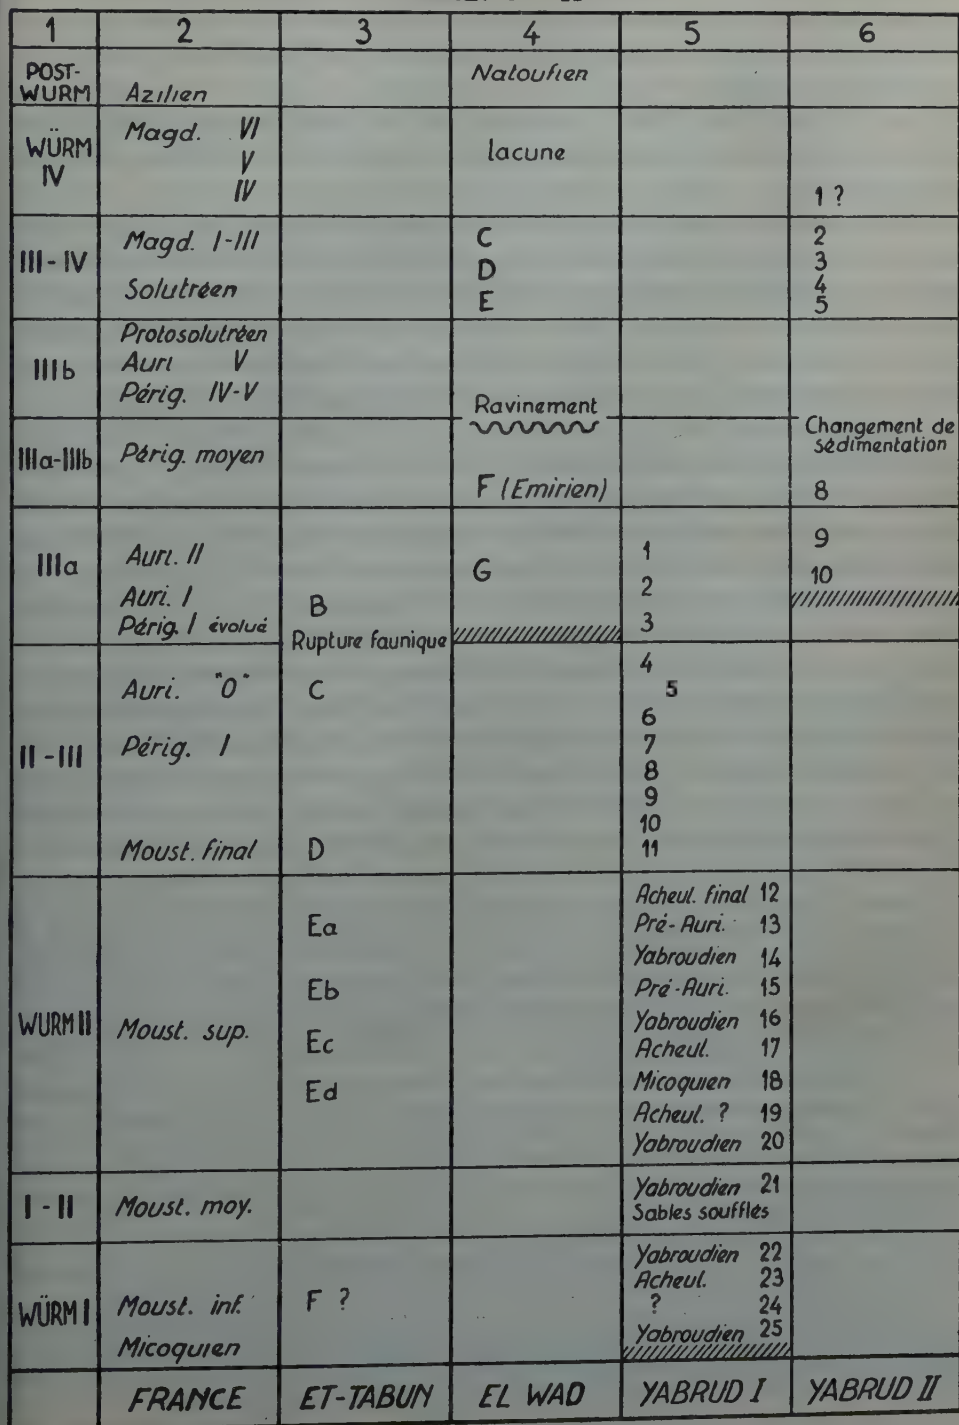 1 2 3 4 5 6
POST-WURM Azilien Natoufien
WÜRM IV Magd. VI lacune
V
IV 1 ?
III-IV Magd. I-III C 2
D 3
Solutréen E 4
5
IIIb Protosolutréen
Auri V
Périg. IV-V Ravinement
IIIa-IIIb Périg. moyen Changement de
sédimentation
F (Emirien) 8
IIIa Auri. II G 1 9
Auri. I B 2 10
Périg. I évolué 3
Rupture faunique
II-III Auri. "0" C 4
5
Périg. I 6
7
8
9
10
Moust. final D 11
WURM II Moust. sup. Ea Acheul. final 12
Pré-Auri. 13
Yabroudien 14
Eb Pré-Auri. 15
Yabroudien 16
Ec Acheul. 17
Ed Micoquien 18
Acheul. ? 19
Yabroudien 20
I-II Moust. moy. Yabroudien 21
Sables soufflés
WÜRM I Moust. inf. F ? Yabroudien 22
Acheul. 23
? 24
Micoquien Yabroudien 25
FRANCE ET-TABUN EL WAD YABRUD I YABRUD II